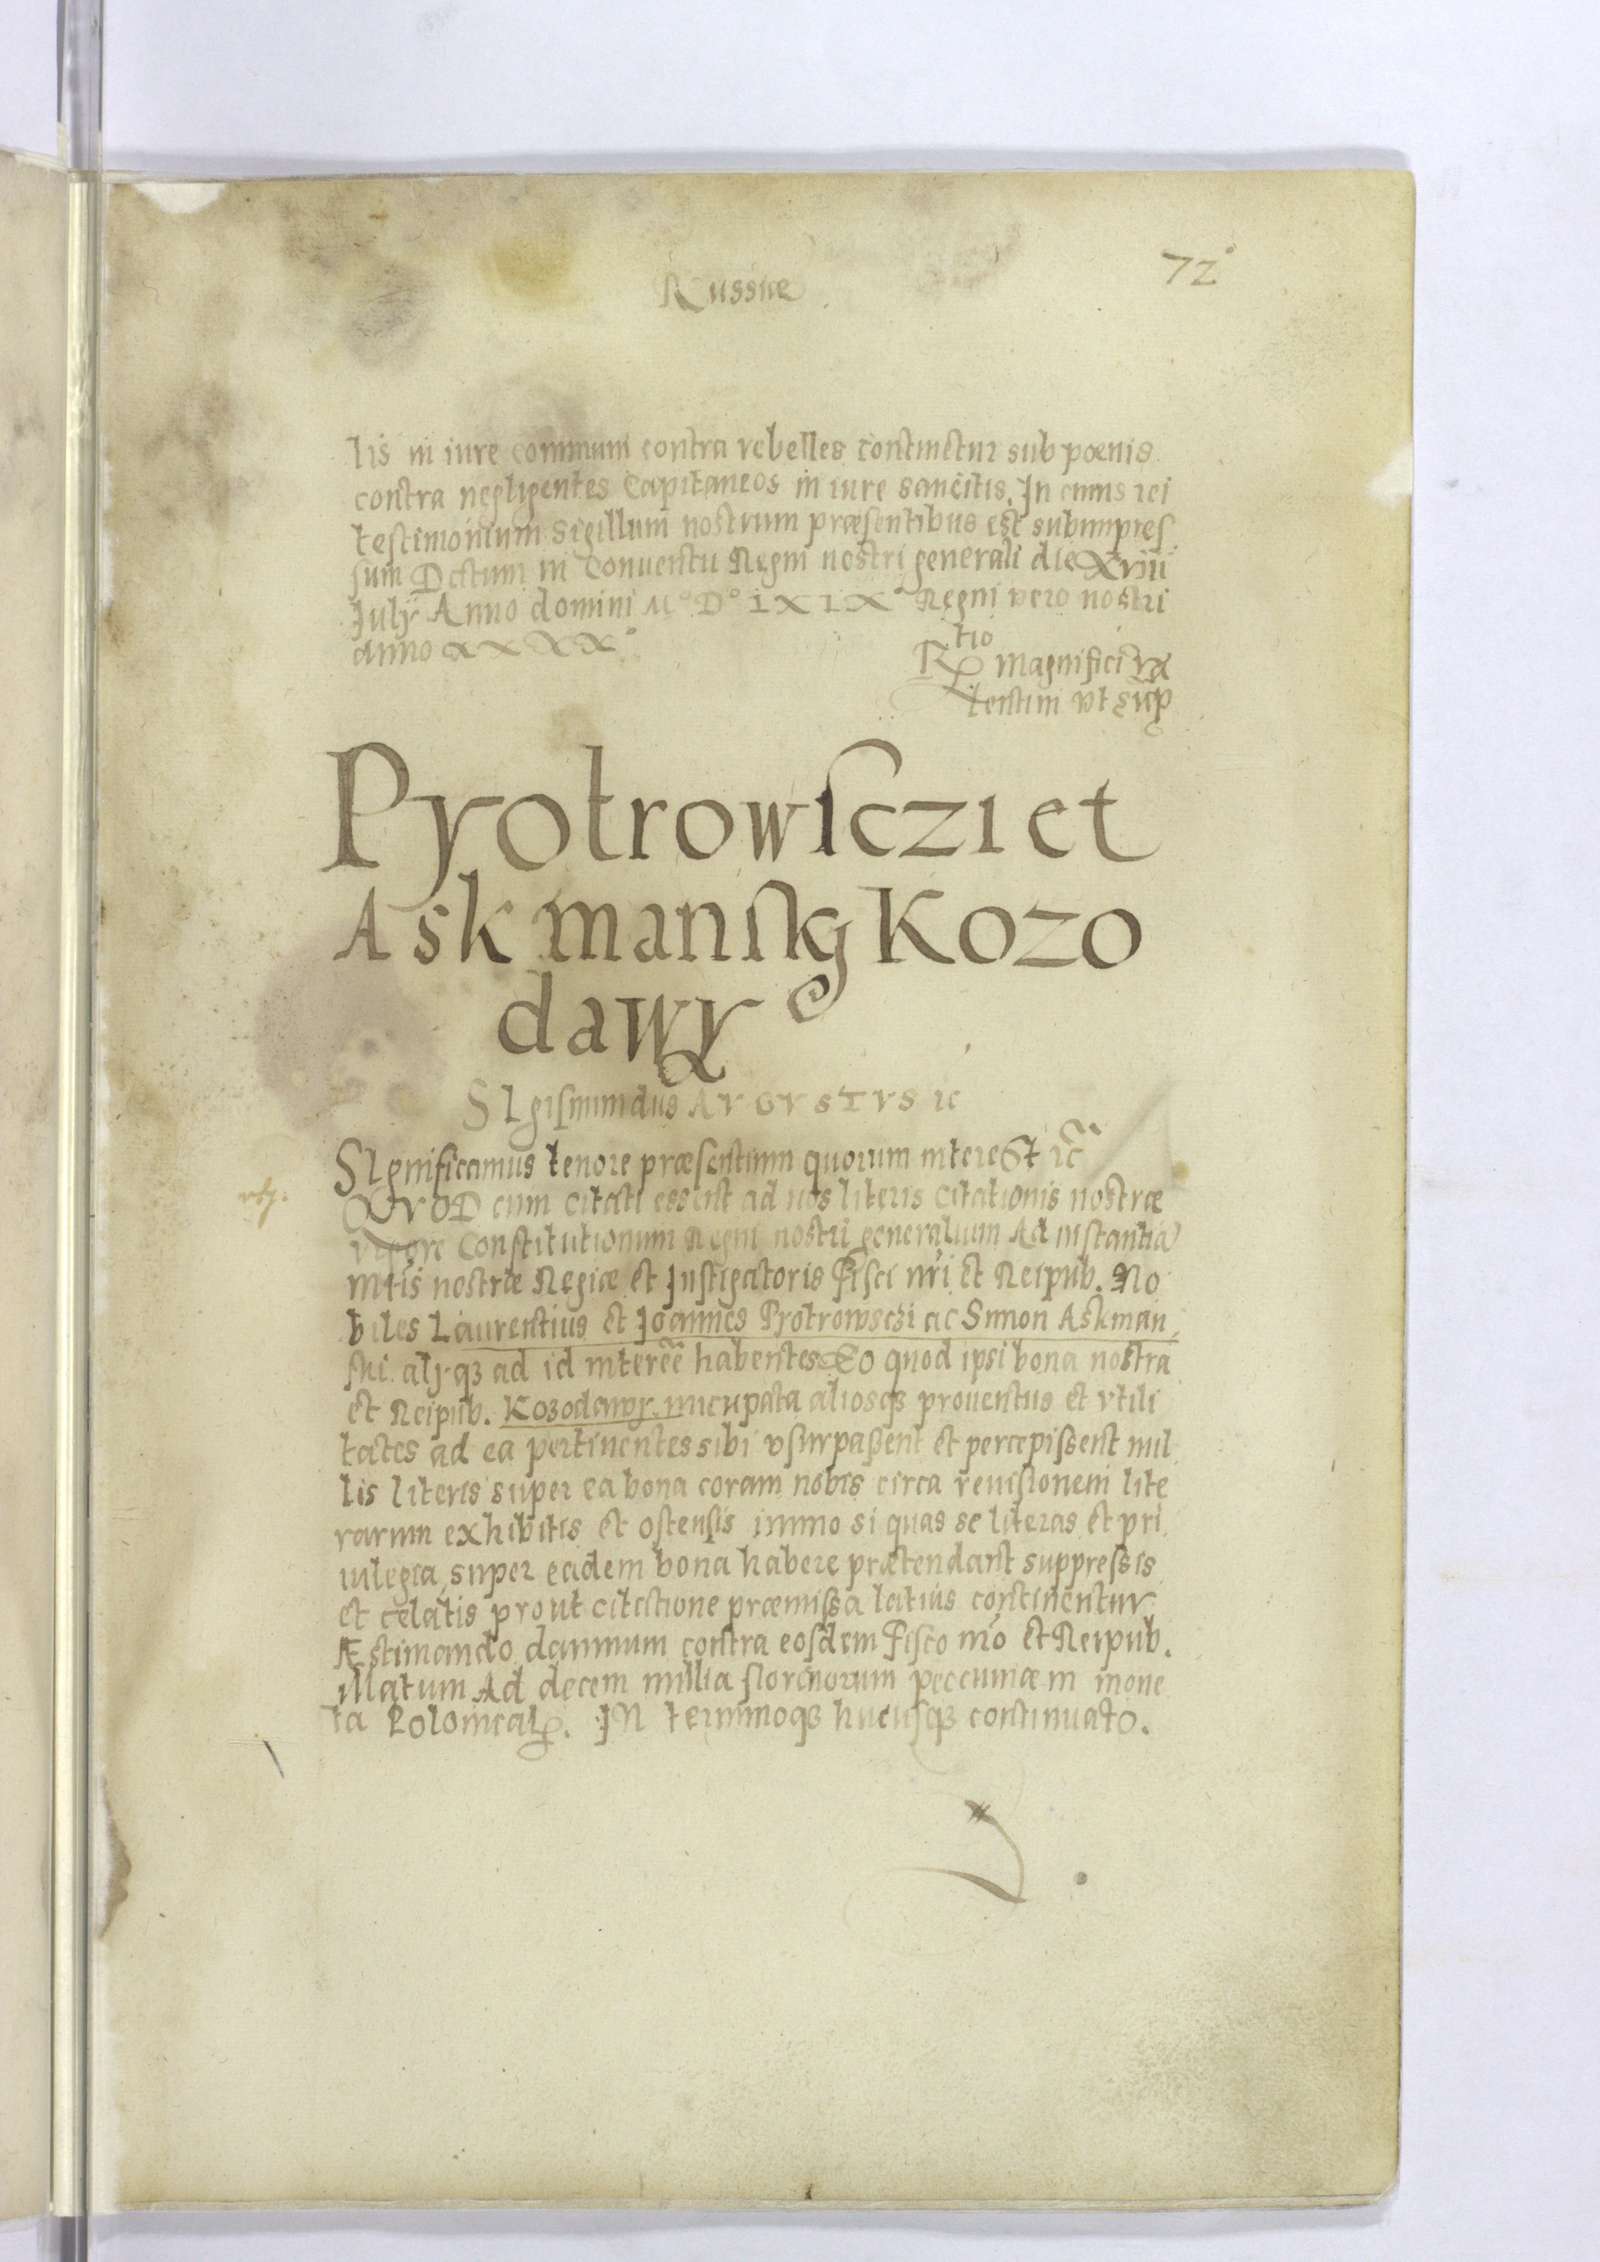 Russiæ
72
lis in iure communi contra rebelles continetur sub poenis
contra negligentes Capitaneos in iure sancitis. In cuius rei
testimonium sigillum nostrum præsentibus est subimpres
sum Datum in Conuentu Regni nostri generali die Xviii
Iulij Anno domini M° D° LXIX° Regni vero nostri
anno XXXX°
R tio magnifici Va
lentini vt sup
Pyotrowsczi et
Askmansky Kozo
dawy
SIgismundus AVGVSTVS ic
SIgnificamus tenore præsentium quorum interest ic
QVOD cum citati essent ad nos literis citationis nostræ
vigore Constitutionum Regni nostri generalium Ad instantia
Mtis nostræ Regiæ et Instigatoris Fisci nri et Reipub. No
biles Laurentius et Joannes Pyotrowsczi ac Simon Askman
ski alijqz ad id intereẽ habentes Eo quod ipsi bona nostra
et Reipub. Kozodawy nuncupata aliosqz prouentus et vtili
tates ad ea pertinentes sibi vsurpaßent et percepissent nul
lis literis super ea bona coram nobis circa reuisionem lite
rarum exhibitis et ostensis immo si quas se literas et pri
uilegia super eadem bona habere prætendant suppressis
et celatis prout citatione præmissa latius continentur
Æstimando damnum contra eosdem Fisco nro et Reipub.
illatum Ad decem millia florenorum peccuniæ in mone
ta Polonical. IN terminoqz hucusqz continuato.